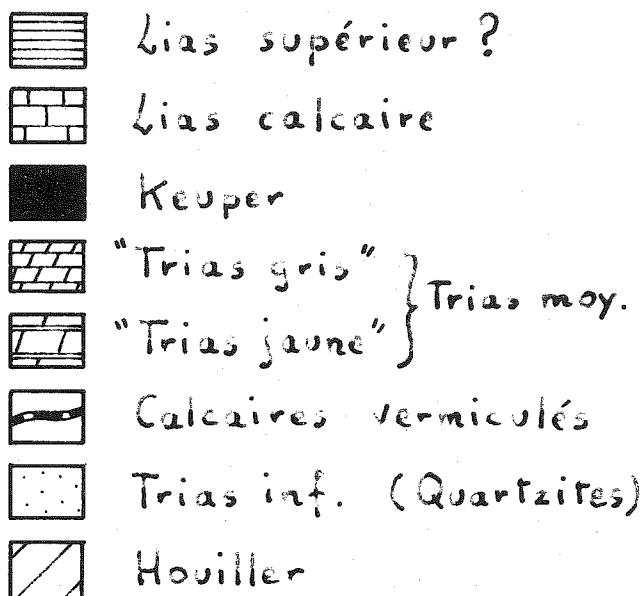 Lias supérieur ?
Lias calcaire
Keuper
"Trias gris"
"Trias jaune"
Trias moy.
Calcaires vermiculés
Trias inf. (Quartzites)
Houiller